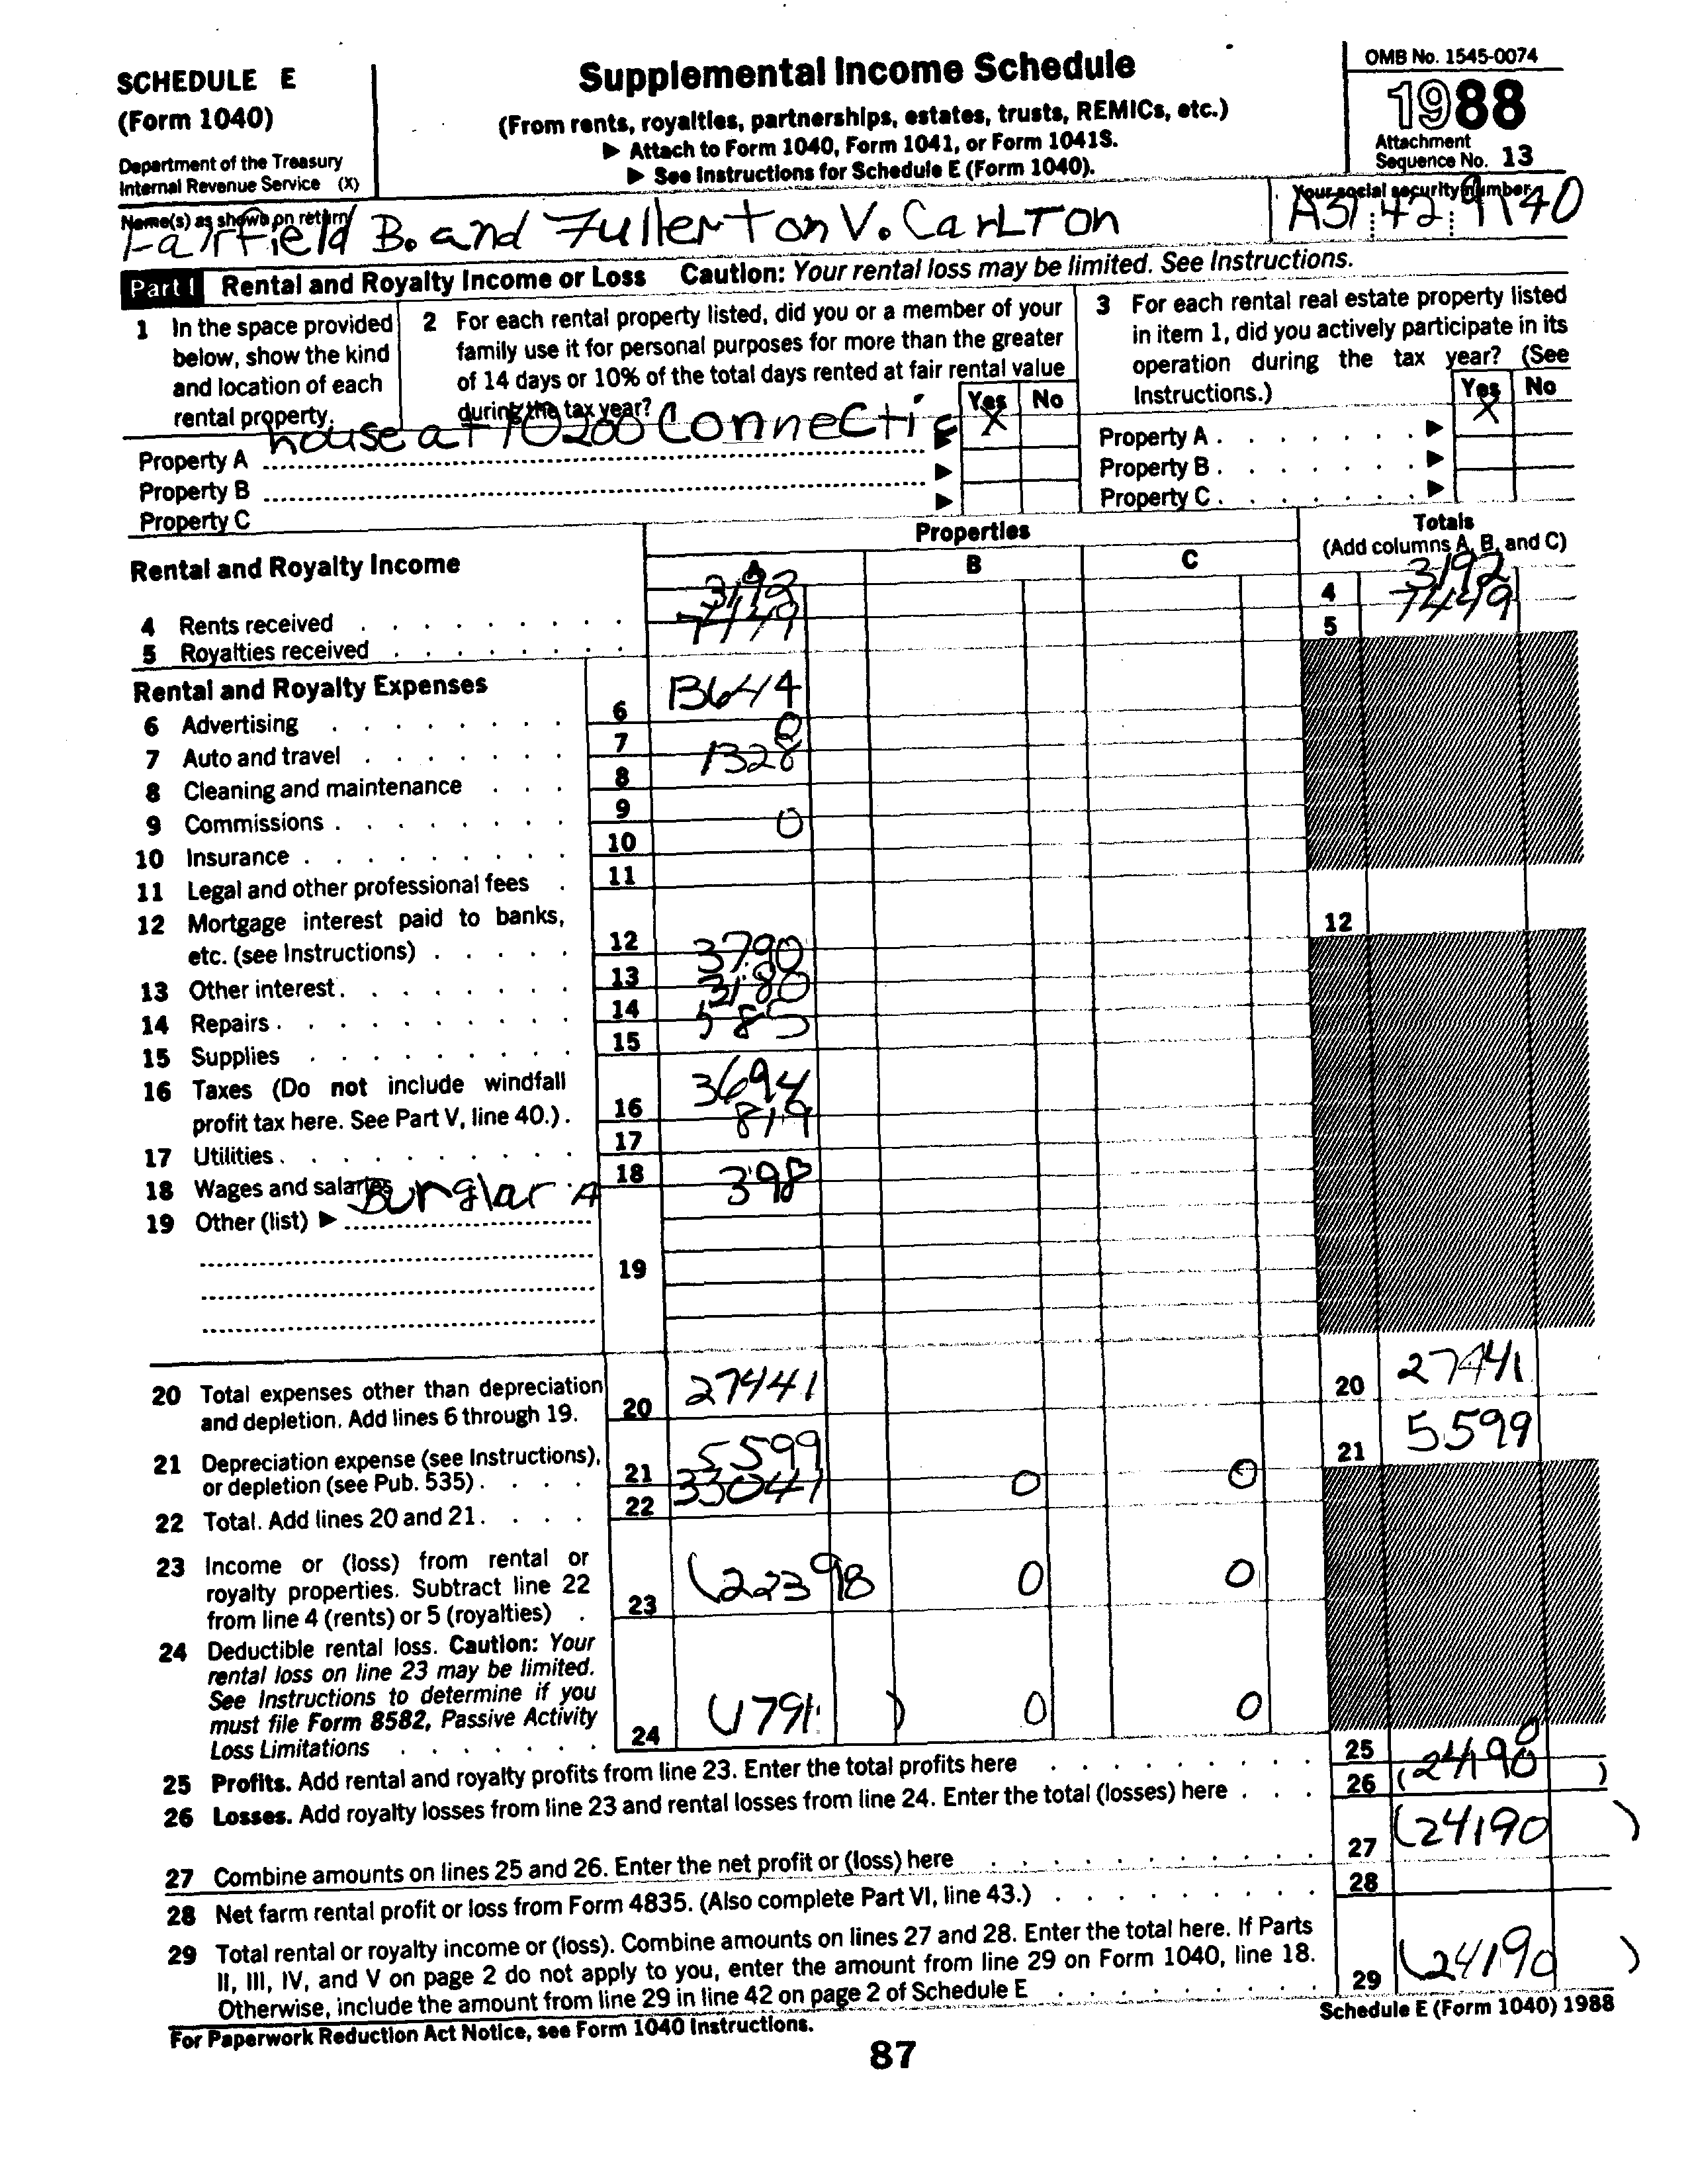 SCHEDULE E
(Form 1040)
Department of the Treasury
Internal Revenue Service (X)
Supplemental Income Schedule
(From rents, royalties, partnerships, estates, trusts, REMICs, etc.)
▶ Attach to Form 1040, Form 1041, or Form 1041S.
▶ See Instructions for Schedule E (Form 1040).
OMB No. 1545-0074
1988
Attachment
Sequence No. 13
Name(s) as shown on return
Fairfield B. and Fullerton V. Carlton
Your social security number
A31 42 9140
Part I Rental and Royalty Income or Loss Caution: Your rental loss may be limited. See Instructions.
1 In the space provided
below, show the kind
and location of each
rental property.
2 For each rental property listed, did you or a member of your
family use it for personal purposes for more than the greater
of 14 days or 10% of the total days rented at fair rental value
during the tax year?
Yes No
3 For each rental real estate property listed
in item 1, did you actively participate in its
operation during the tax year? (See
Instructions.)
Yes No
Property A house at 10200 Connectic ▶ X
Property B ▶
Property C ▶
Property A . . . . . . . ▶ X
Property B . . . . . . . ▶
Property C . . . . . . . ▶
Rental and Royalty Income
Properties
A B C
Totals
(Add columns A, B, and C)
4 Rents received 3192 4 3192
5 Royalties received 7449 5 7449
Rental and Royalty Expenses
6 Advertising 6 13644
7 Auto and travel 7 0
8 Cleaning and maintenance 8 1328
9 Commissions 9
10 Insurance 10 0
11 Legal and other professional fees 11
12 Mortgage interest paid to banks,
etc. (see Instructions) 12 3790 12
13 Other interest 13 3180
14 Repairs 14 585
15 Supplies 15
16 Taxes (Do not include windfall
profit tax here. See Part V, line 40.) 16 3694
17 Utilities 17 819
18 Wages and salaries 18 398
19 Other (list) ▶ Burglar A
19
20 Total expenses other than depreciation
and depletion. Add lines 6 through 19. 20 27441 20 27441
21 Depreciation expense (see Instructions),
or depletion (see Pub. 535) 21 5599 0 0 21 5599
22 Total. Add lines 20 and 21 22 33041
23 Income or (loss) from rental or
royalty properties. Subtract line 22
from line 4 (rents) or 5 (royalties) 23 (22398 0 0
24 Deductible rental loss. Caution: Your
rental loss on line 23 may be limited.
See Instructions to determine if you
must file Form 8582, Passive Activity
Loss Limitations 24 (1791 ) 0 0
25 Profits. Add rental and royalty profits from line 23. Enter the total profits here 25 0
26 Losses. Add royalty losses from line 23 and rental losses from line 24. Enter the total (losses) here 26 (24190 )
27 Combine amounts on lines 25 and 26. Enter the net profit or (loss) here 27 (24190 )
28 Net farm rental profit or loss from Form 4835. (Also complete Part VI, line 43.) 28
29 Total rental or royalty income or (loss). Combine amounts on lines 27 and 28. Enter the total here. If Parts
II, III, IV, and V on page 2 do not apply to you, enter the amount from line 29 on Form 1040, line 18.
Otherwise, include the amount from line 29 in line 42 on page 2 of Schedule E 29 (24190 )
For Paperwork Reduction Act Notice, see Form 1040 Instructions.
Schedule E (Form 1040) 1988
87